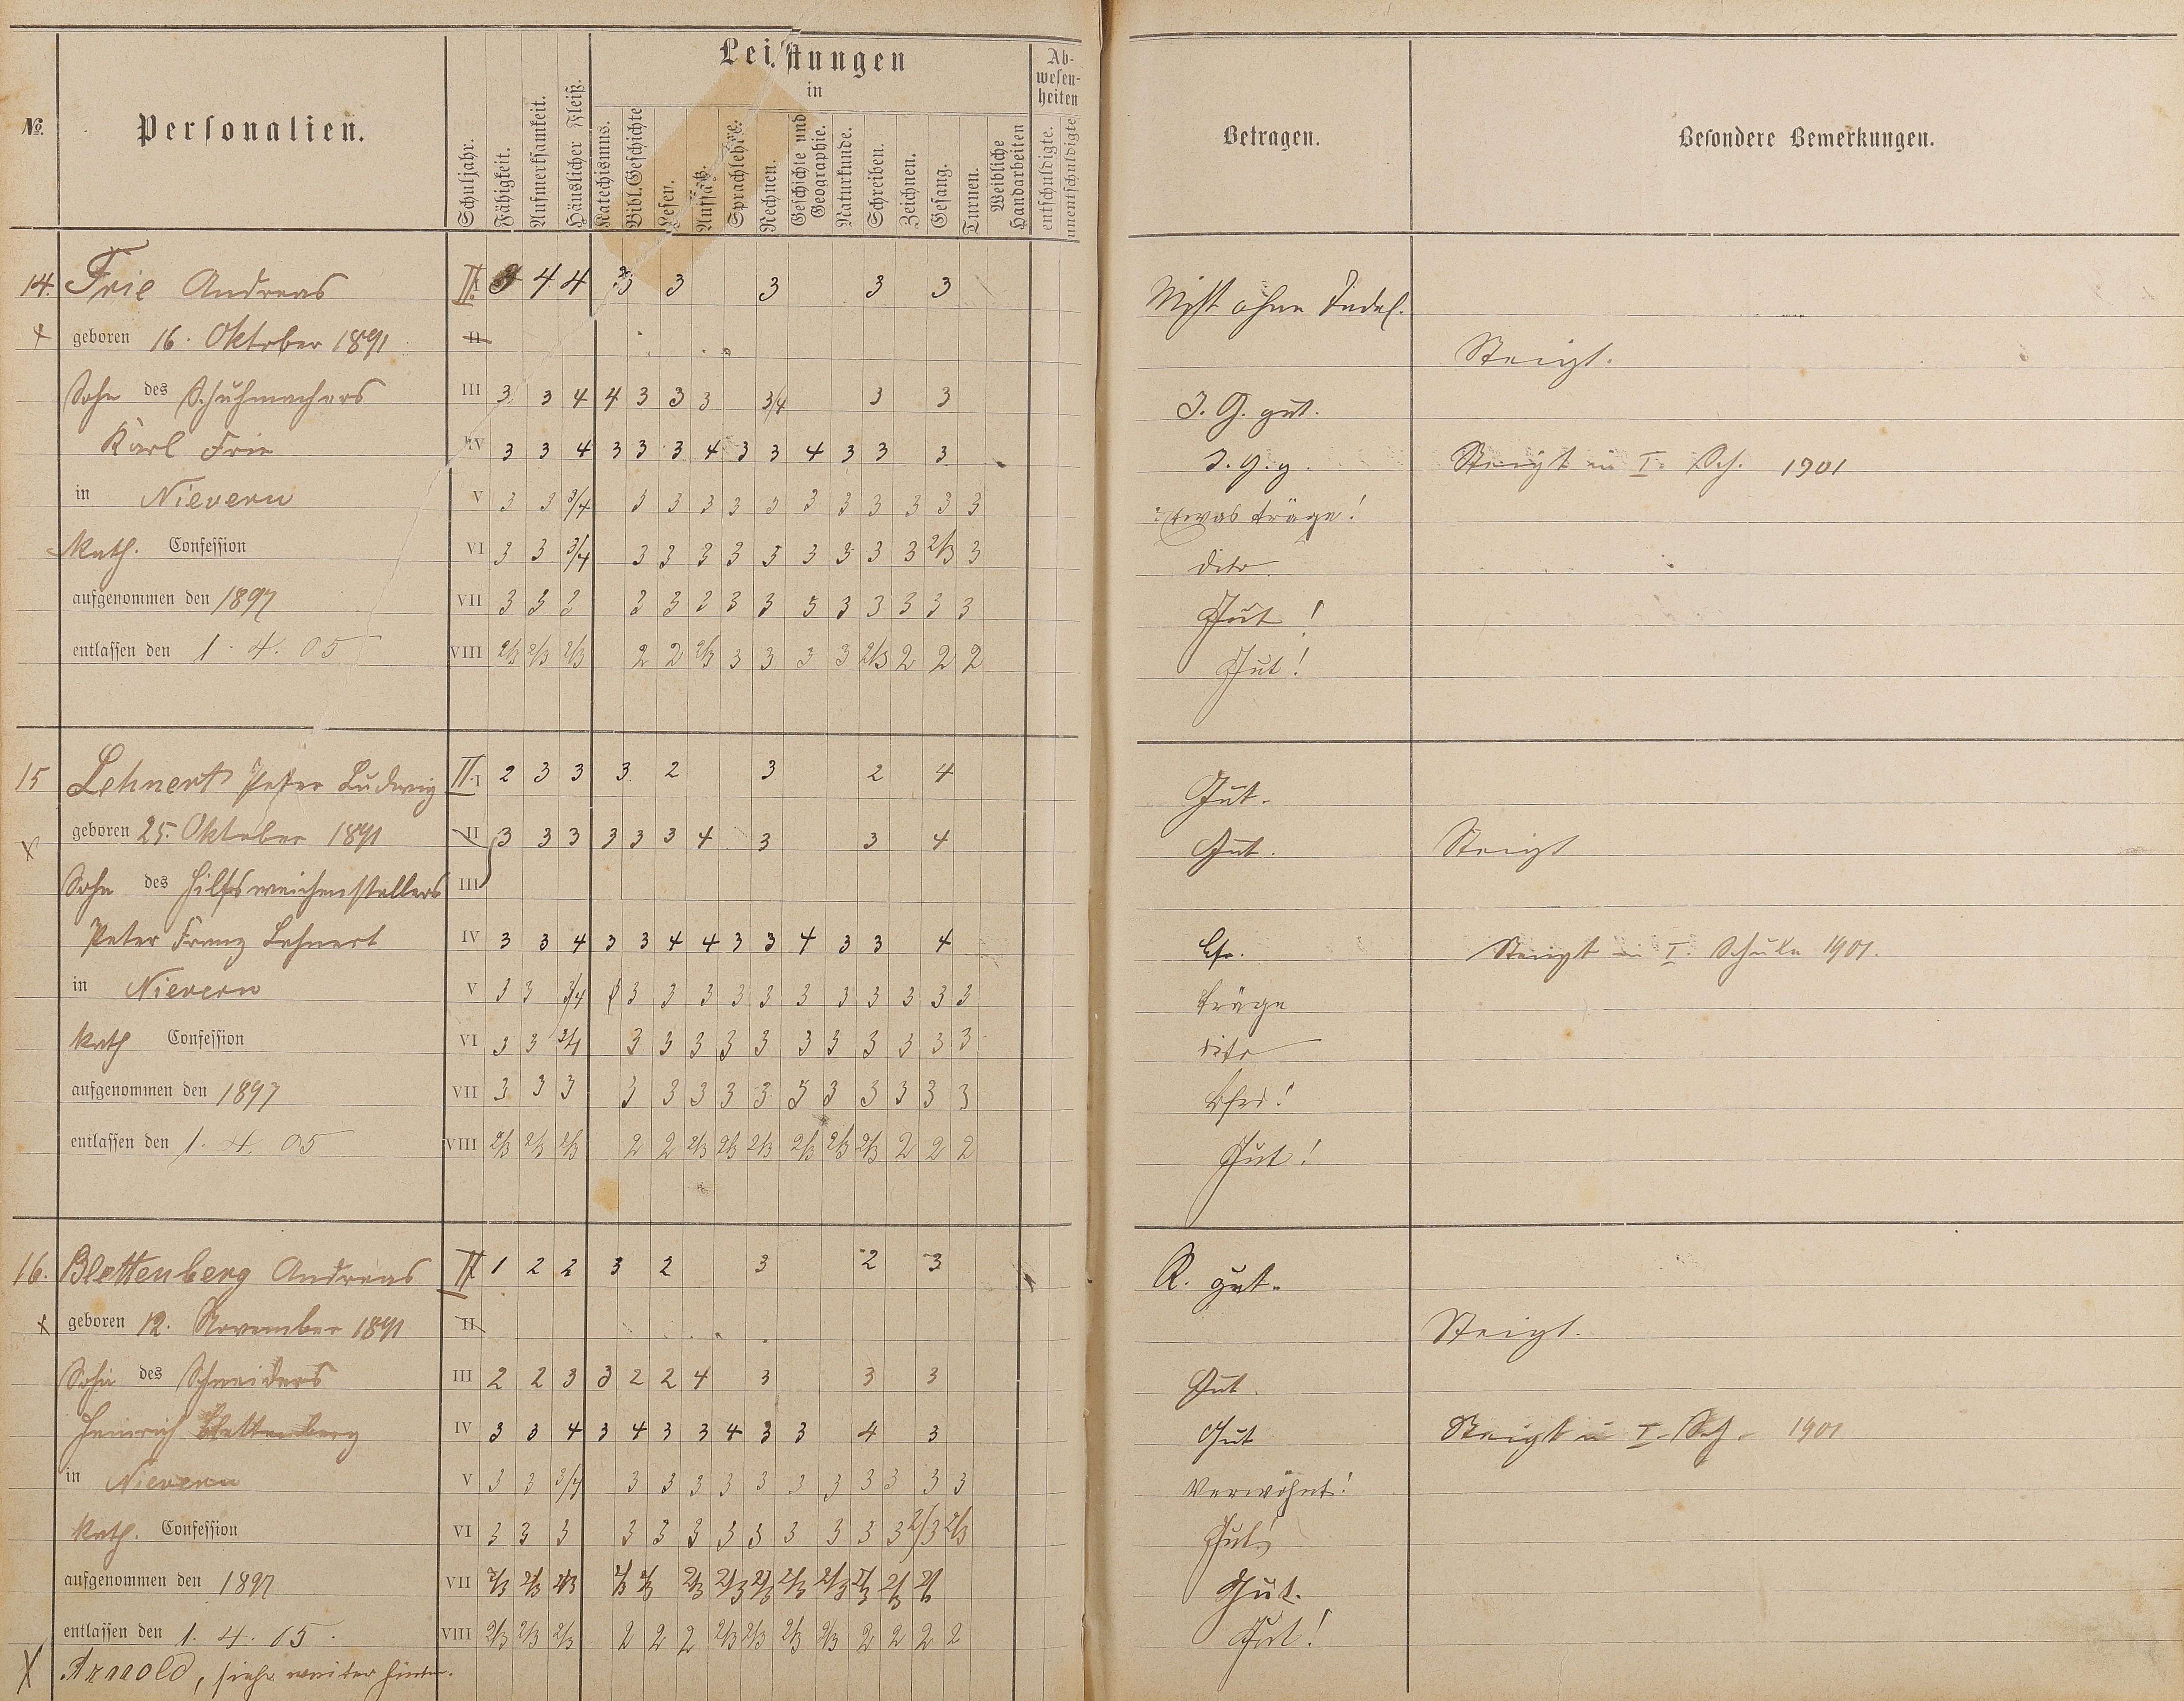 No.
Personalien.
Schuljahr.
Fähigkeit.
Aufmerksamkeit.
Häuslicher Fleiß.
Leistungen
in
Katechismus.
Bibl. Geschichte
Lesen.
Aufsatz.
Sprachlehre.
Rechnen.
Geschichte und Geographie.
Naturkunde.
Schreiben.
Zeichnen.
Gesang.
Turnen.
Weibliche Handarbeiten
Abwesenheiten
entschuldigte.
unentschuldigte
Betragen.
Besondere Bemerkungen.
14. Frie Andreas II. I 3 4 4 3 3 3 3 3 Nicht ohne Tadel.
x geboren 16. Oktober 1891 II Steigt.
Sohn des Schuhmachers III 3 3 4 4 3 3 3 3/4 3 3 I. G. gut.
Karl Frie IV 3 3 4 3 3 3 4 3 3 4 3 3 3 I. G. g. Steigt in I. Sch. 1901
in Nievern V 3 3 3/4 3 3 3 3 3 3 3 3 3 3 3 Etwas träge!
Kath. Confession VI 3 3 3/4 3 3 3 3 3 3 3 3 3 2/3 3 dito
aufgenommen den 1897 VII 3 3 3 3 3 3 3 3 3 3 3 3 3 3 Gut!
entlassen den 1. 4. 05 VIII 2/3 2/3 2/3 2 2 2/3 3 3 3 3 2/3 2 2 2 Gut!
15 Lehnert Peter Ludwig II. I 2 3 3 3. 2 3 2 4 Gut.
x geboren 25. Oktober 1891 II 3 3 3 3 3 3 4 3 3 4 Gut. Steigt
Sohn des Hilfsweichenstellers III
Peter Franz Lehnert IV 3 3 4 3 3 4 4 3 3 4 3 3 4 Steigt in I. Schule 1901.
in Nievern V 3 3 3/4 3 3 3 3 3 3 3 3 3 3 3 träge
Kath Confession VI 3 3 3/4 3 3 3 3 3 3 3 3 3 3 3 dito
aufgenommen den 1897 VII 3 3 3 3 3 3 3 3 3 3 3 3 3 3
entlassen den 1. 4. 05 VIII 2/3 2/3 2/3 2 2 2/3 2/3 2/3 2/3 2/3 2/3 2 2 2 Gut!
16. Blettenberg Andreas II 1 2 2 3 2 3 2 3 R. gut.
x geboren 12. November 1891 II Steigt.
Sohn des Schneiders III 2 2 3 3 2 2 4 3 3 3 Gut.
Heinrich Blettenberg IV 3 3 4 3 4 3 3 4 3 3 4 3 Gut Steigt in I. Sch. 1901
in Nievern V 3 3 3/4 3 3 3 3 3 3 3 3 3 3 3 Verwöhnt!
Kath. Confession VI 3 3 3 3 3 3 3 3 3 3 3 3 2/3 2/3 Gut!
aufgenommen den 1897 VII 2/3 2/3 2/3 2/3 2/3 2/3 2/3 2/3 2/3 2/3 2/3 2/3 2/3 Gut.
entlassen den 1. 4. 05. VIII 2/3 2/3 2/3 2 2 2 2/3 2/3 2/3 2/3 2 2 2 2 Gut!
X Arnold, siehe weiter hinten.